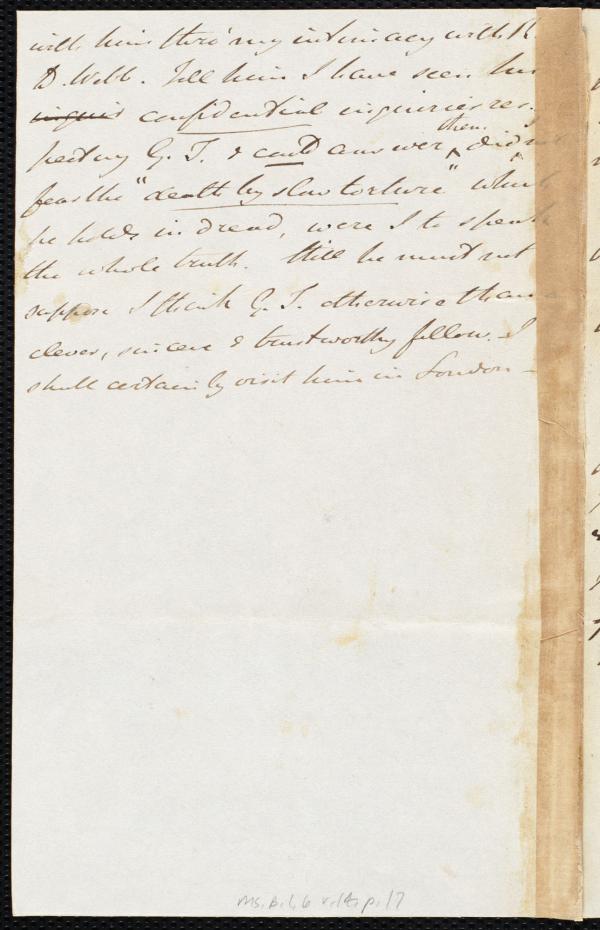 with him thro' my intimacy with R.
D. Webb. Tell him I have seen his
inquiri confidential inquiries res-
pecting G. T. & could answer them, did I not
fear the "death by slow torture" which
he holds in dread, were I to speak
the whole truth. Still he must not
suppose I think G. T. otherwise than a
clever, sincere & trustworthy fellow. I
shall certainly visit him in London -
Ms. B. 1. 6 v. 14, p. 17